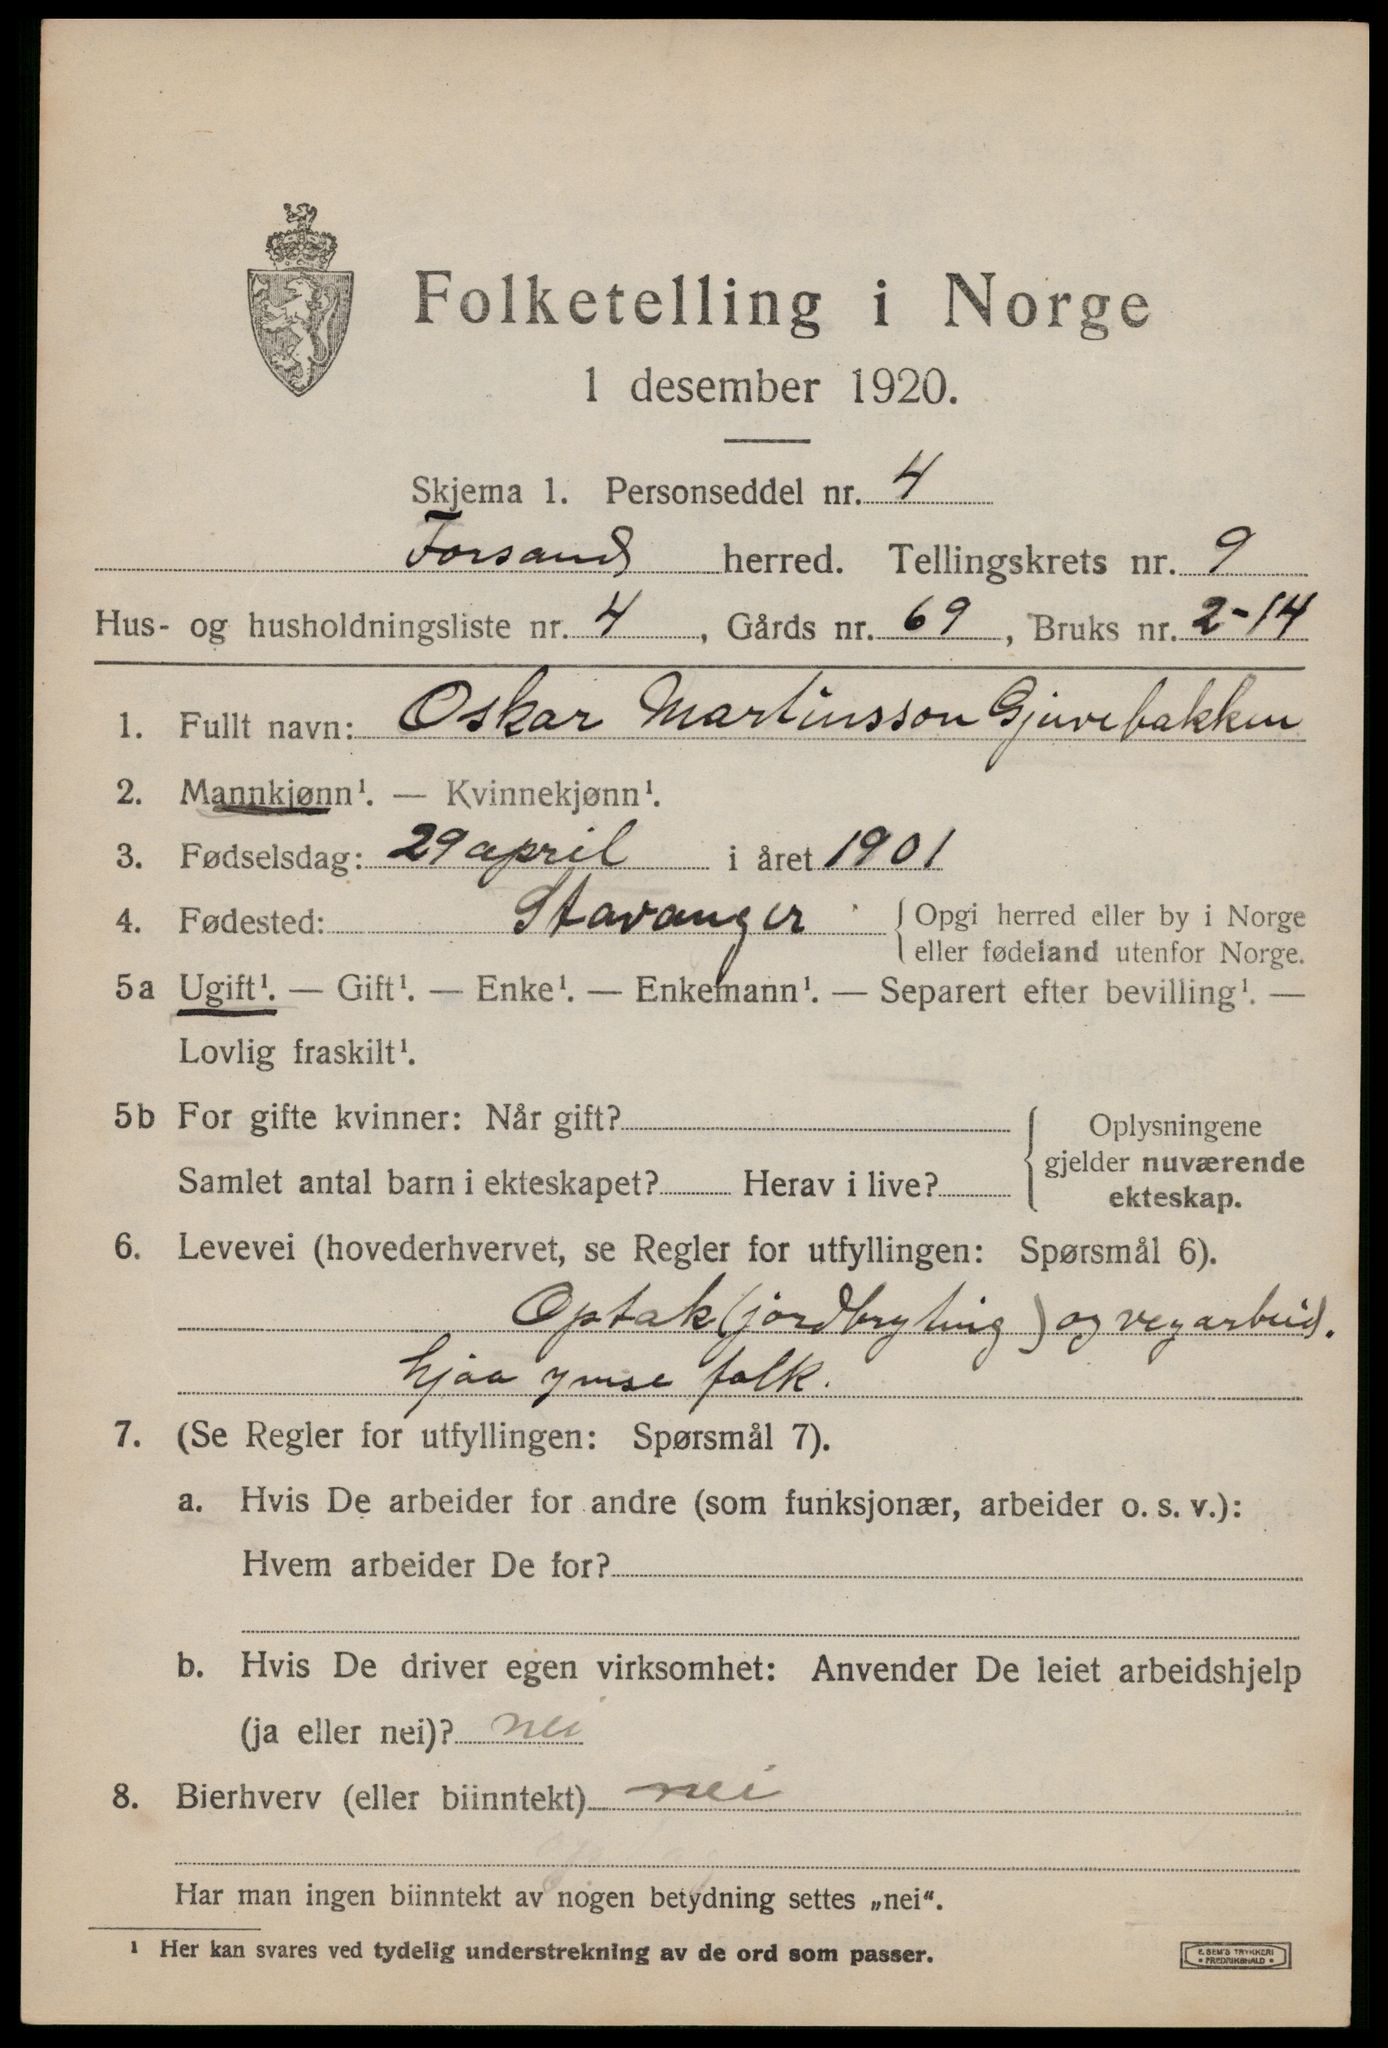 Folketelling i Norge
1 desember 1920.
Skjema 1. Personseddel nr. 4
Forsand herred. Tellingskrets nr. 9
Hus- og husholdningsliste nr. 4, Gårds nr. 69, Bruks nr. 2-14
1. Fullt navn: Oskar Martinsson Gjuvebakken
2. Mannkjønn¹. — Kvinnekjønn¹.
3. Fødselsdag: 29 april i året 1901
4. Fødested: Stavanger { Opgi herred eller by i Norge
eller fødeland utenfor Norge.
5a Ugift¹. — Gift¹. — Enke¹. — Enkemann¹. — Separert efter bevilling¹. —
Lovlig fraskilt¹.
5b For gifte kvinner: Når gift?
Samlet antal barn i ekteskapet? Herav i live?
{ Oplysningene
gjelder nuværende
ekteskap.
6. Levevei (hovederhvervet, se Regler for utfyllingen: Spørsmål 6).
Optak (jordbryting) og vegarbeid.
hjaa ymse folk.
7. (Se Regler for utfyllingen: Spørsmål 7).
a. Hvis De arbeider for andre (som funksjonær, arbeider o. s. v.):
Hvem arbeider De for?
b. Hvis De driver egen virksomhet: Anvender De leiet arbeidshjelp
(ja eller nei)? nei
8. Bierhverv (eller biinntekt) nei
Har man ingen biinntekt av nogen betydning settes „nei“.
¹ Her kan svares ved tydelig understrekning av de ord som passer.
E. SEM'S TRYKKERI
• FREDRIKSHALD •